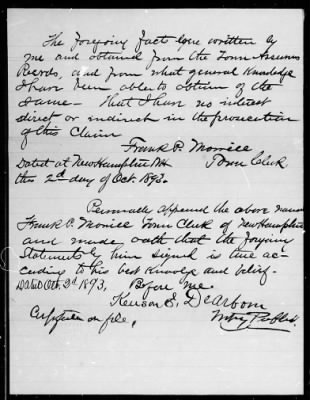 The Forgoing facts are written by
me and obtained from the Town Assessors
Records, and from what general Knowledge
I have been able to obtain of the
same — that I have no interest
direct or indirect in the prosecution
of this Claim
Frank P. Morrill
Dated at New Hampton NH Town Clerk
this 2nd day of Oct. 1893.
Personally appeared the above named
Frank P. Morrill Town Clerk of New Hampton
and made oath that the forgoing
Statements by him signed is true ac-
cording to his best Knowledge and belief.
Dated Oct. 2d 1893, Before me
E. Dearborn
Notary Public.
on file,